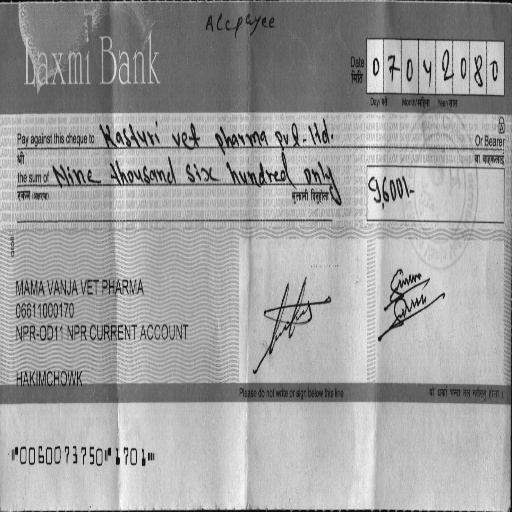 A/c payee
Laxmi Bank
Date 07042080
मिति
Day/गते Month/महिना Year/साल
Pay against this cheque to Kasturi vet pharma pvt. ltd. Or Bearer
श्री वा वाहकलाई
the sum of Nine thousand six hundred only 9,600/-
रकम (अक्षरमा)
MAMA VANJA VET PHARMA
06611000170
NPR-OD11 NPR CURRENT ACCOUNT
HAKIMCHOWK
Please do not write or sign below this line
⑈0060073750⑈ 1701⑈